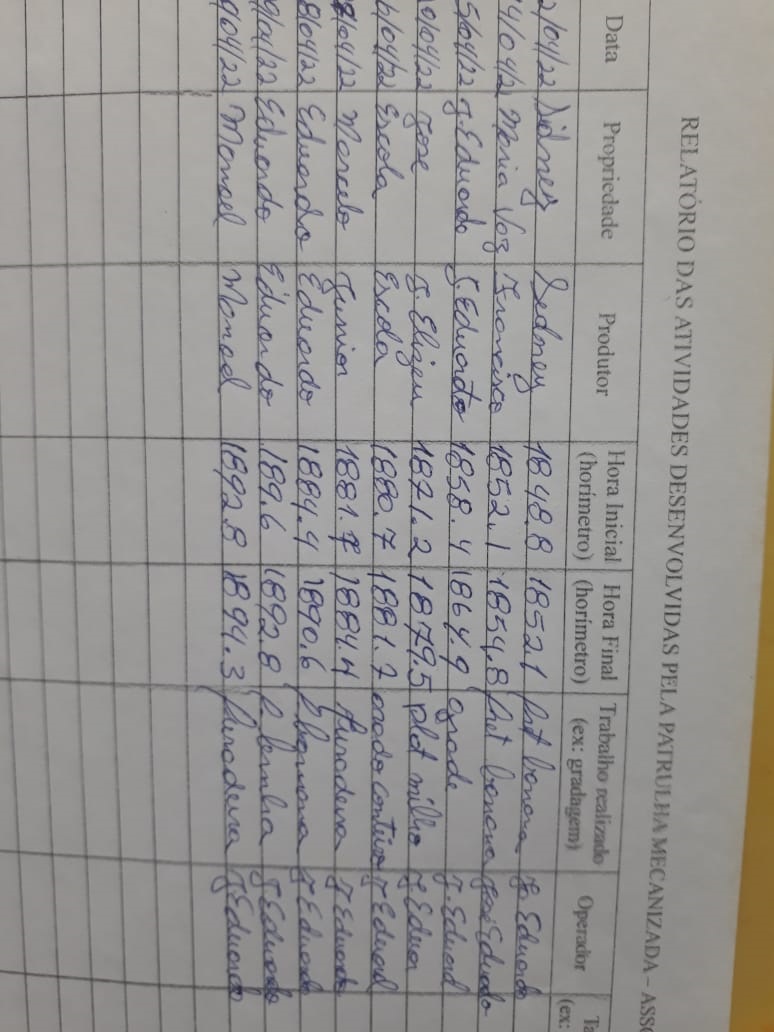 RELATÓRIO DAS ATIVIDADES DESENVOLVIDAS PELA PATRULHA MECANIZADA – ASS
Data Propriedade Produtor Hora Inicial (horímetro) Hora Final (horímetro) Trabalho realizado (ex: gradagem) Operador Ta (ex:
2/04/22 Sidney Sidney 1848.8 1852.1
4/04/2 Maria Francisco 1852.1 1854.8 banana José Eduardo
5/04/22 J. Eduardo J. Eduardo 1858.4 1864.9 grade J. Eduard
0/04/22 José J. Elizeu 1871.2 1879.5 plat milho J. Eduar
6/04/22 Escola Escola 1880.7 1881.7 J Eduard
8/04/22 Marcelo Junior 1881.7 1884.4 furadeira J Eduardo
8/04/22 Eduardo Eduardo 1884.4 1890.6 J Eduardo
9/04/22 Eduardo Eduardo 189.6 1892.8 J Eduardo
9/04/22 Manoel Manoel 1892.8 1894.3 furadeira J Eduardo